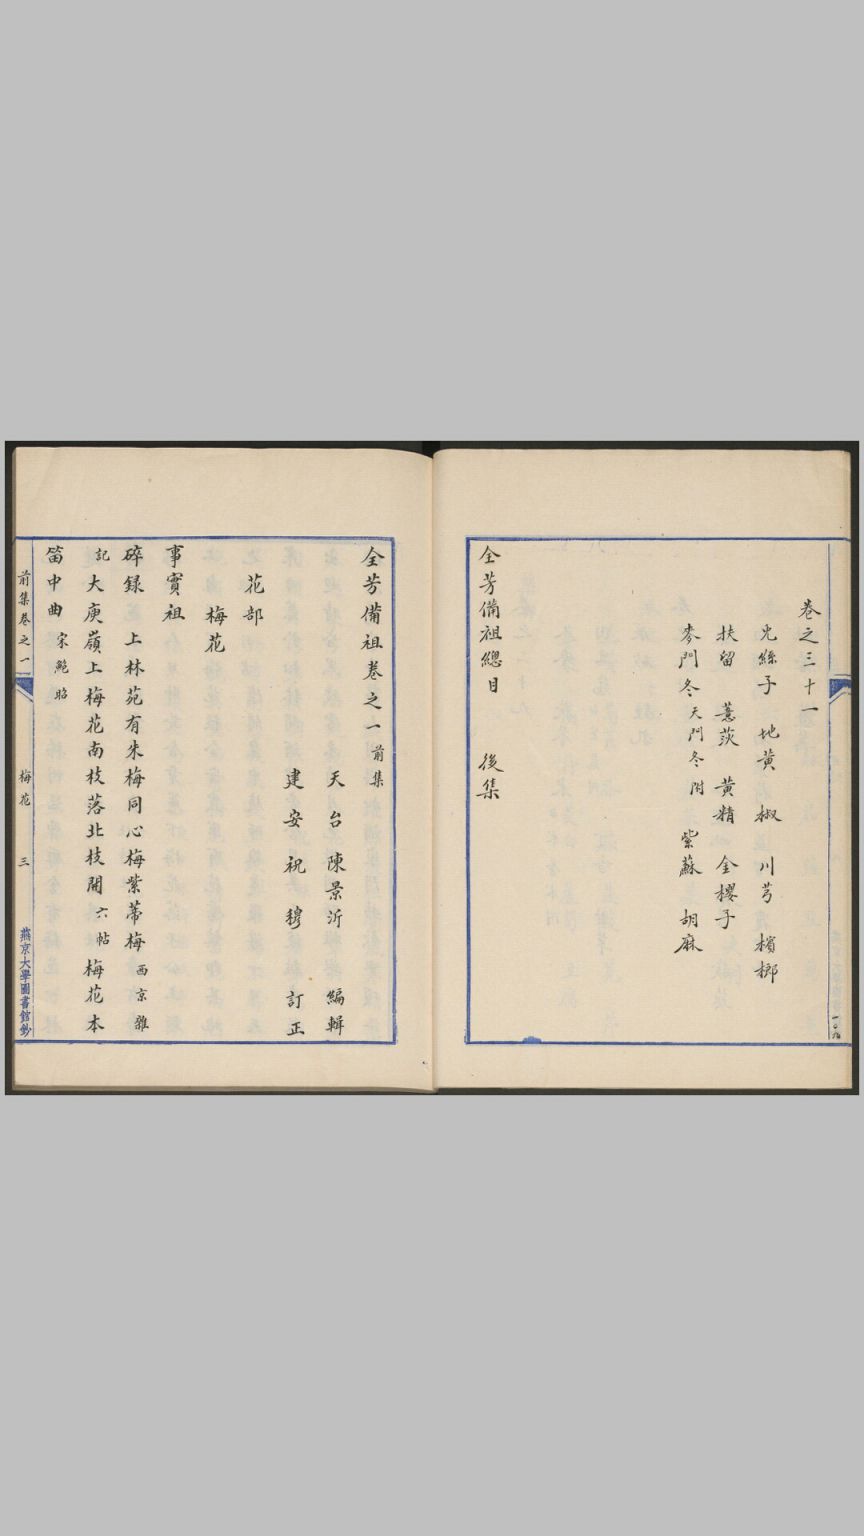 卷之三十一
兔絲子 地黃 椒 川芎 檳榔
扶留 薏苡 黃精 金櫻子
麥門冬 天門冬附 紫蘇 胡麻
全芳備祖總目 後集
全芳備祖卷之一 前集
天台陳景沂 編輯
建安祝穆 訂正
花部
梅花
事實祖
碎録 上林苑有朱梅同心梅紫蒂梅 西京雜
記 大庾嶺上梅花南枝落北枝開 六帖 梅花本
笛中曲 宋鮑昭
前集卷之一 梅花 三 燕京大學圖書館鈔